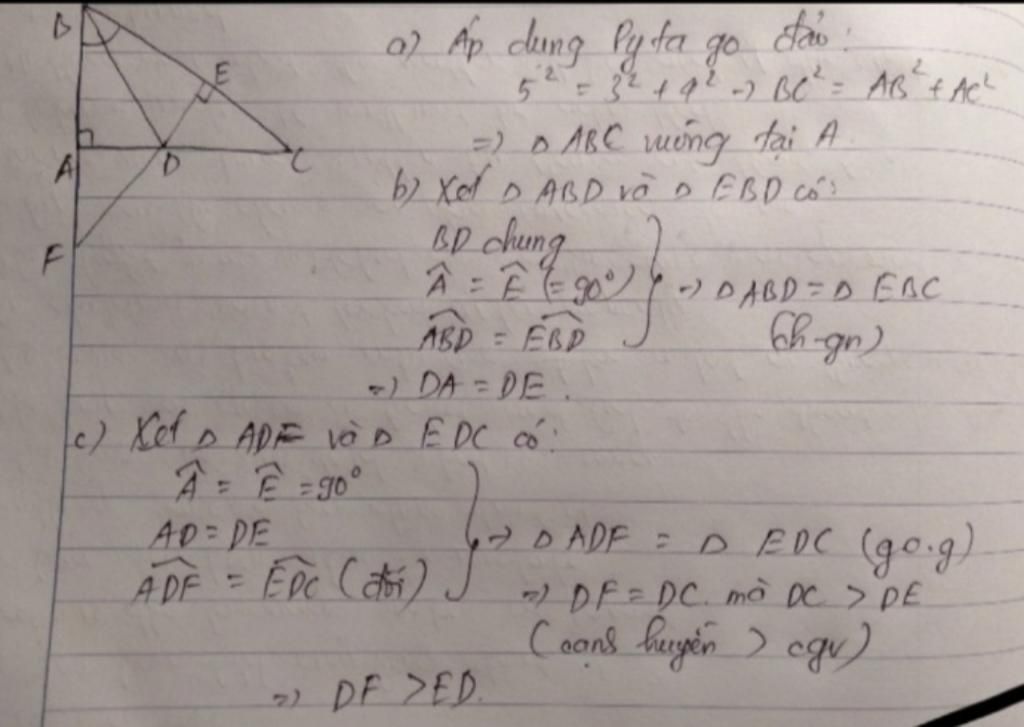 B
E
A
D
C
F
a) Áp dụng Pytago đảo:
5² = 3² + 4² → BC² = AB² + AC²
=> Δ ABC vuông tại A.
b) Xét Δ ABD và Δ EBD có:
BD chung
Â = Ê (= 90°)
ABD = EBD
→ Δ ABD = Δ EBC
(ch-gn)
=> DA = DE.
c) Xét Δ ADF và Δ EDC có:
Â = Ê = 90°
AD = DE
ADF = EDC (đối)
→ Δ ADF = Δ EDC (g.c.g)
=> DF = DC. mà DC > DE
(cạnh huyền > cgv)
=> DF > ED.